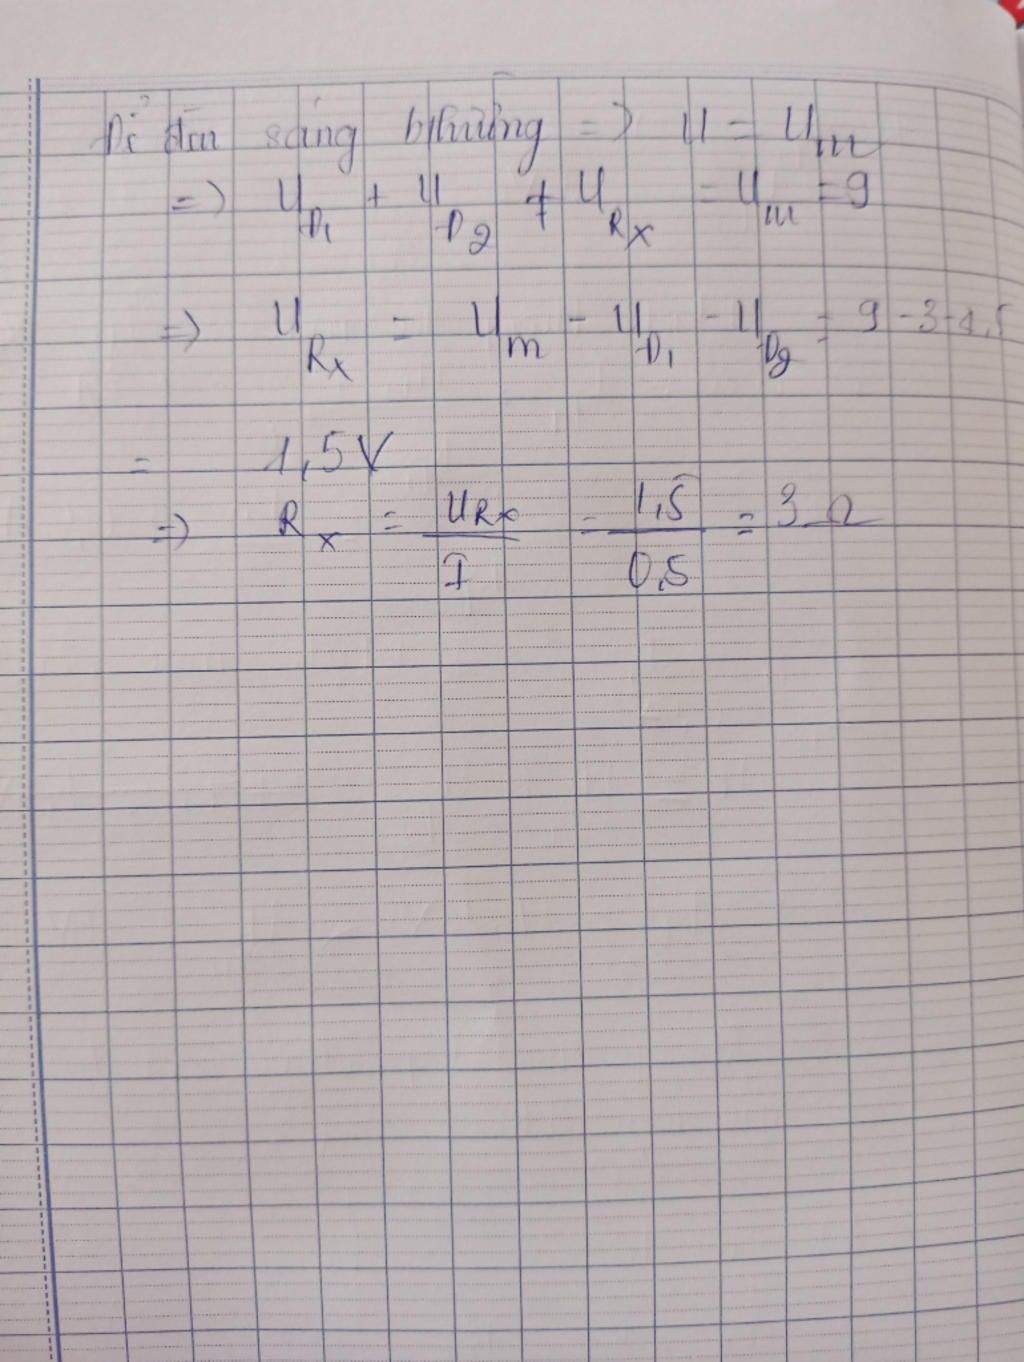 Để đèn sáng bthường => U = Um
=> UĐ1 + UĐ2 + URx = Um = 9
=> URx = Um - UĐ1 - UĐ2 = 9 - 3 - 4,5
= 1,5V
=> Rx = URx / I = 1,5 / 0,5 = 3 Ω